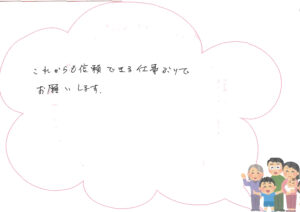 これからも信頼できる仕事
お願いします。